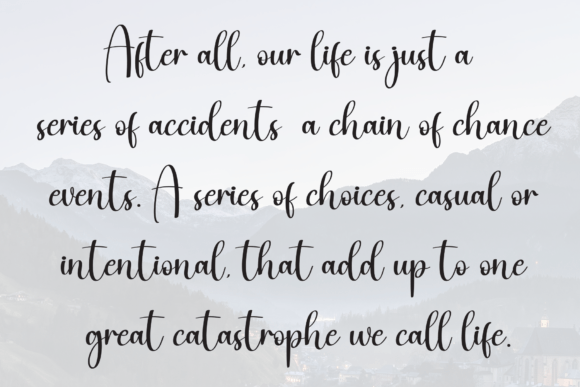 After all, our life is just a
series of accidents a chain of chance
events. A series of choices, casual or
intentional, that add up to one
great catastrophe we call life.